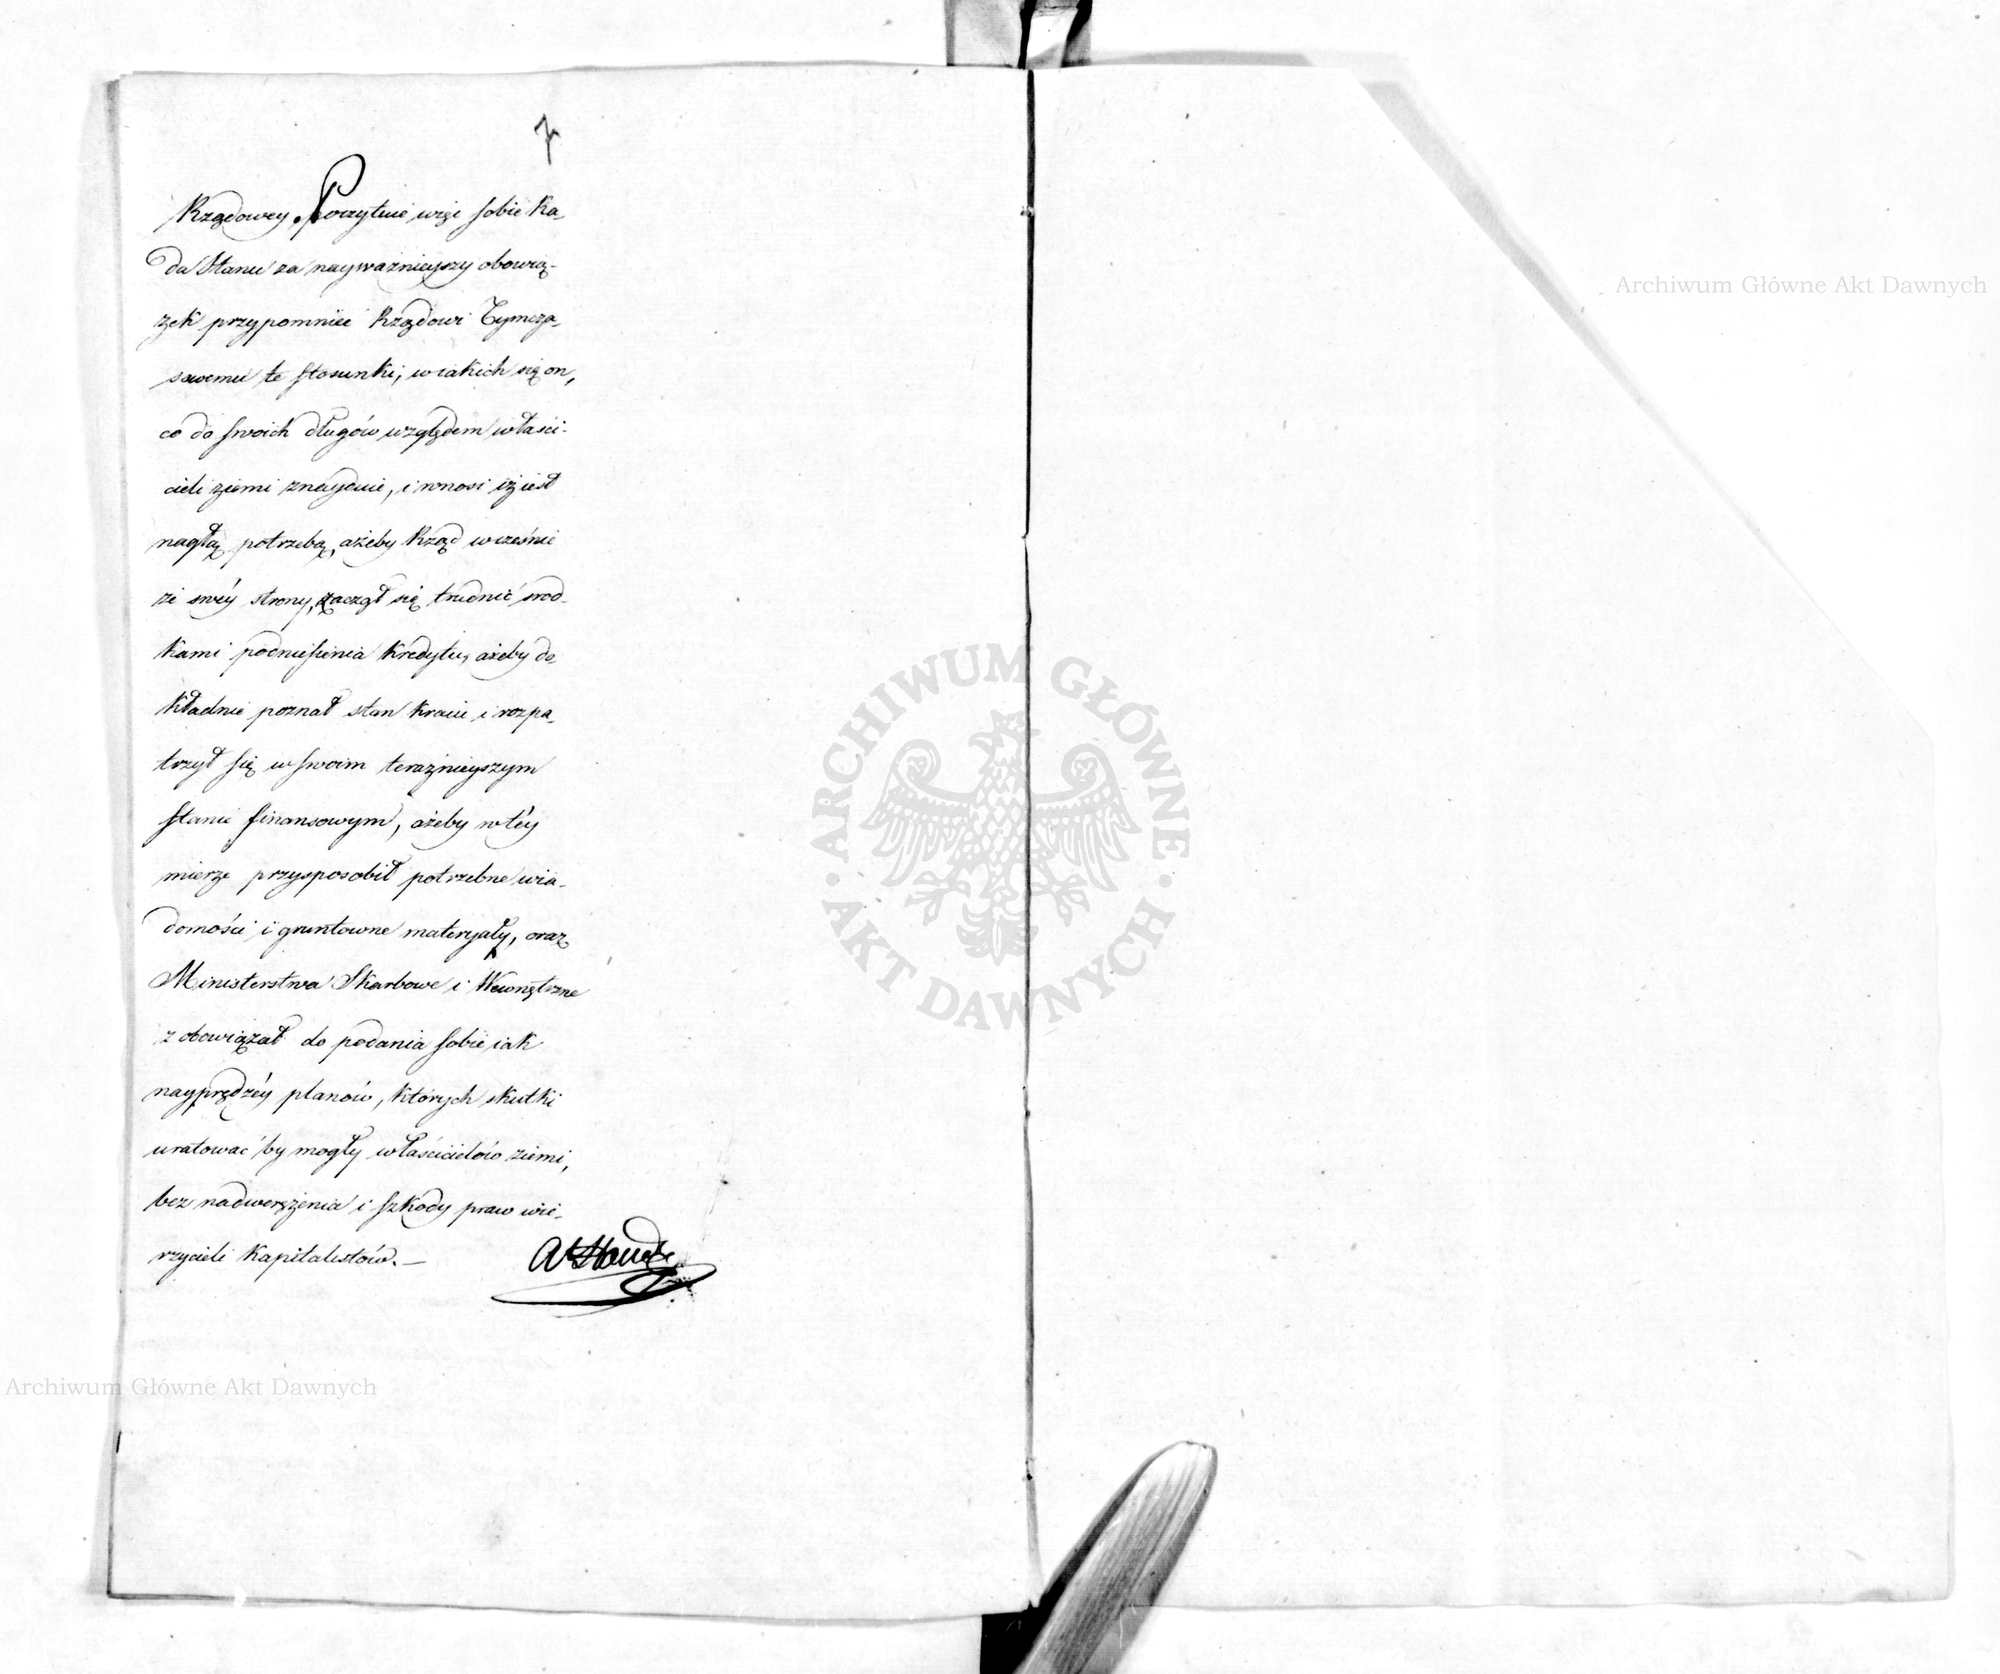 7
Rządowey. Poczytuie więc sobie Ra-
da Stanu za nayważnieyszy obowią-
zek przypomnieć Rządowi Tymcza-
sowemu te stosunki, w iakich się on,
co do swoich długów względem właści-
cieli ziemi znayduie, i wnosi iż iest
nagłą potrzebą, ażeby Rząd wcześnie
ze swéy strony, zaczął się trudnić środ-
kami podniesienia kredytu, ażeby do-
kładnie poznał stan kraiu i rozpa-
trzył się w swoim teraźnieyszym
stanie finansowym, ażeby w téy
mierze przysposobił potrzebne wia-
domości i gruntowne materyały, oraz
Ministerstwa Skarbowe i Wewnętrzne
zobowiązał do podania sobie iak
nayprędzéy planów, których skutki
uratować by mogły właścicielów ziemi,
bez nadwerężenia i szkody praw wie-
rzycieli Kapitalistów. —
Archiwum Główne Akt Dawnych
ARCHIWUM GŁÓWNE
AKT DAWNYCH
Archiwum Główne Akt Dawnych